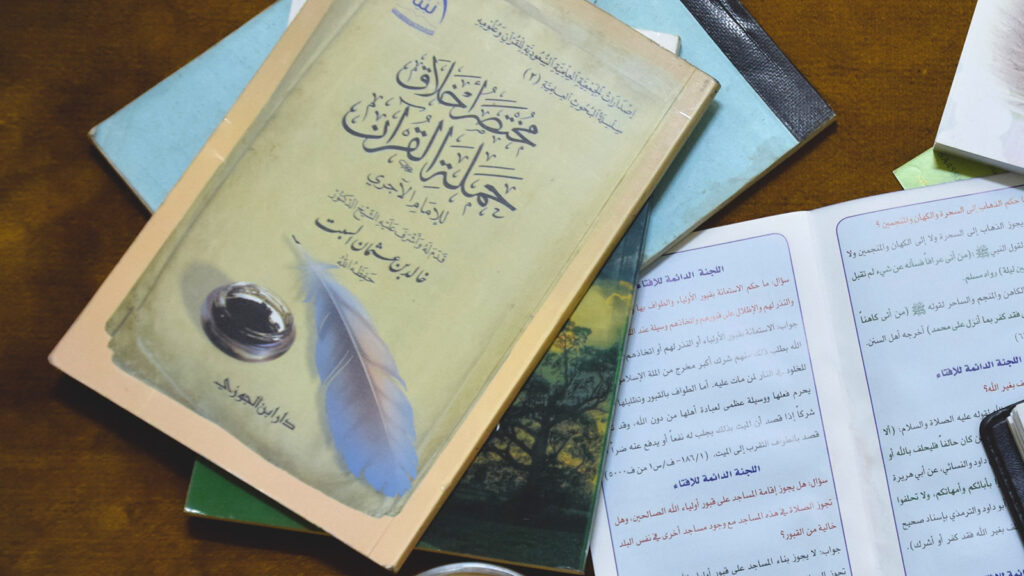 الله
إصدارات الجمعية العلمية السعودية للقرآن وعلومه
(٢)
مختصر أخلاق
حملة القرآن
للإمام الآجري
خالد بن عثمان السبت
حفظه الله
دار ابن الجوزي
حكم الذهاب إلى السحرة والكهان والمنجمين ؟
يجوز الذهاب إلى السحرة ولا إلى الكهان والمنجمين ولا
لقول النبي ﷺ: (من أتى عرافاً فسأله عن شيء لم تقبل
ليلة) رواه مسلم.
الكاهن والمنجم والساحر لقوله ﷺ (من أتى كاهناً
فقد كفر بما أنزل على محمد) أخرجه أهل السنن.
اللجنة الدائمة للإفتاء
بغير الله؟
لقوله عليه الصلاة والسلام: (ألا
كان حالفاً فليحلف بالله أو
داود والنسائي، عن أبي هريرة
بآبائكم وأمهاتكم، ولا تحلفوا
داود والترمذي بإسناد صحيح
بغير الله فقد كفر أو أشرك).
اللجنة الدائمة للإفتاء
سؤال: ما حكم الاستعانة بقبور الأولياء والطواف بها
والنذر لهم
جواب: الاستعانة بقبور الأولياء أو النذر لهم أو اتخاذهم
الله بطلب ذلك منهم شرك أكبر مخرج من الملة الإسلامية
للخلود في النار لمن مات عليه، أما الطواف بالقبور وتظليلها
يحرم فعلها ووسيلة عظمى لعبادة أهلها من دون الله، وقد
شركاً إذا قصد أن الميت بذلك يجلب له نفعاً أو يدفع عنه ضراً
قصد بالطواف التقرب إلى الميت.
اللجنة الدائمة للإفتاء
سؤال: هل يجوز إقامة المساجد على قبور أولياء الله الصالحين، وهل
تجوز الصلاة في هذه المساجد مع وجود مساجد أخرى في نفس البلد
خالية من القبور؟
جواب: لا يجوز بناء المساجد على قبور